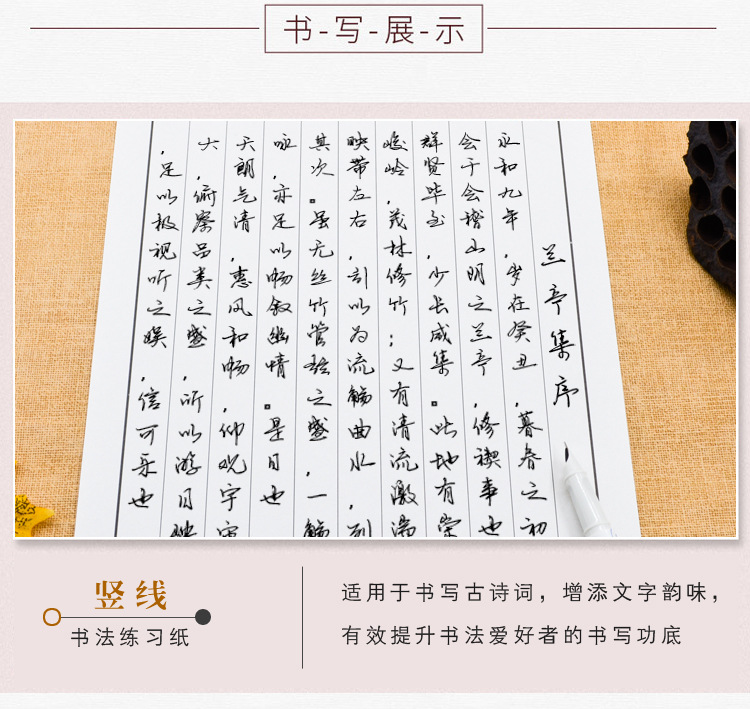 书-写-展-示
兰亭集序
永和九年，岁在癸丑，暮春之初
会于会稽山阴之兰亭，修禊事也
群贤毕至，少长咸集。此地有崇
峻岭，茂林修竹；又有清流激湍
映带左右，引以为流觞曲水，列
其次。虽无丝竹管弦之盛，一觞
咏，亦足以畅叙幽情。是日也
天朗气清，惠风和畅，仰观宇宙
大，俯察品类之盛，所以游目骋
，足以极视听之娱，信可乐也
竖线
书法练习纸
适用于书写古诗词，增添文字韵味，
有效提升书法爱好者的书写功底